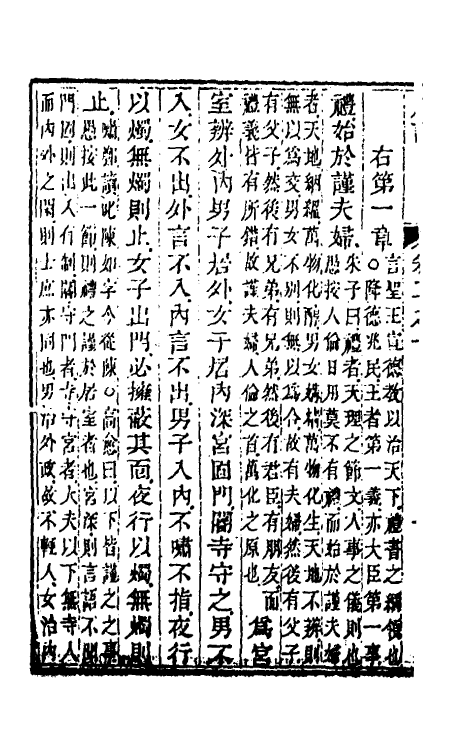 右第一章○言聖王宣德教以治天下禮書之綱領也
○降德兆民王者第一義亦大臣第一事
禮始於謹夫婦朱子曰禮者天理之節文人事之儀則也
愚按人倫日用莫不有禮而始於謹夫婦
者天地絪縕萬物化醇男女媾精萬物化生天地不辨則
無以為交男女不別則無以為合故有夫婦然後有父子
有父子然後有兄弟有兄弟然後有君臣有朋友而
禮義皆有所錯故謹夫婦人倫之首萬化之原也
為宮
室辨外內男子居外女子居內深宮固門閽寺守之男不
入女不出外言不入內言不出男子入內不嘯不指夜行
以燭無燭則止女子出門必擁蔽其面夜行以燭無燭則
止嘯鄭讀叱陳如字今從陳○高愈曰以下皆謹之之事
愚按此一節則禮之謹於居室者也宮深則言語不聞
門固則出入有制閽守門者寺守宮者大夫以下無寺人
而內外之閑則士庶亦同也男治外政故不輕人女治內